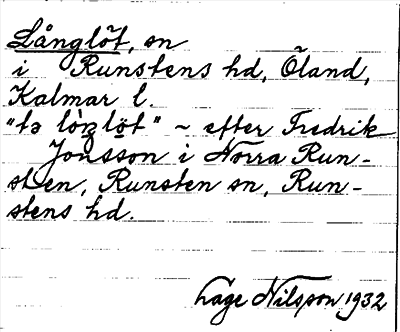 Långlöt, sn
i Runstens hd, Öland,
Kalmar l.
"tə lòŋlöt" ~ efter Fredrik
Jonsson i Norra Run-
sten, Runsten sn, Run-
stens hd.
Lage Nilsson 1932